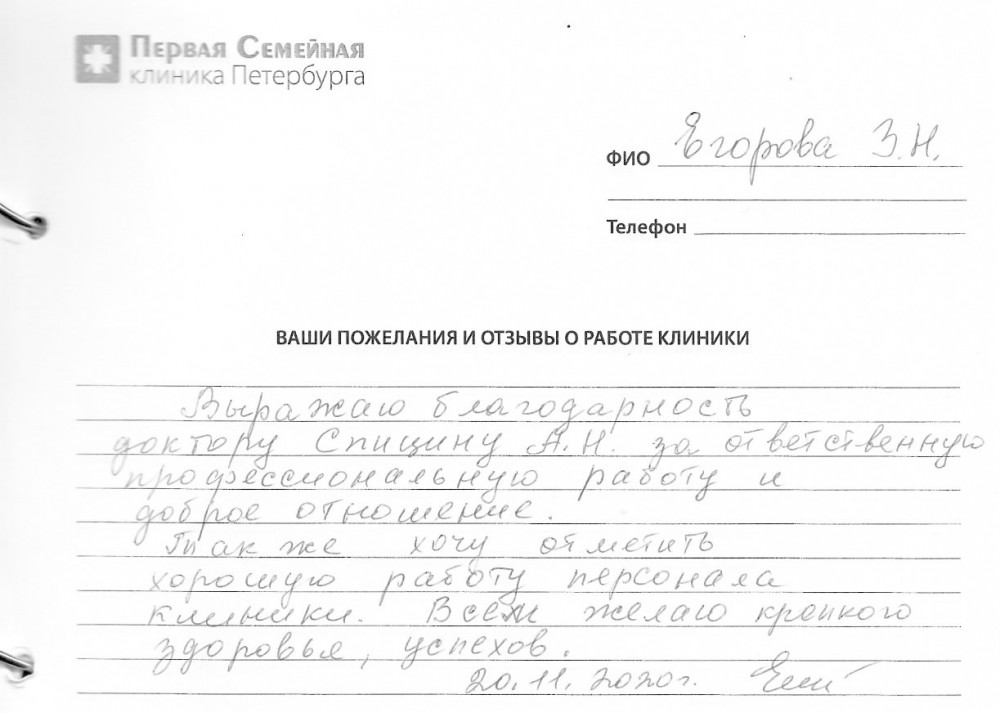 Первая Семейная
клиника Петербурга
ФИО Егорова З.Н.
Телефон
ВАШИ ПОЖЕЛАНИЯ И ОТЗЫВЫ О РАБОТЕ КЛИНИКИ
Выражаю благодарность
доктору Спицину А.Н. за ответственную
профессиональную работу и
доброе отношение.
Так же хочу отметить
хорошую работу персонала
клиники. Всем желаю крепкого
здоровья, успехов.
20.11.2020г.